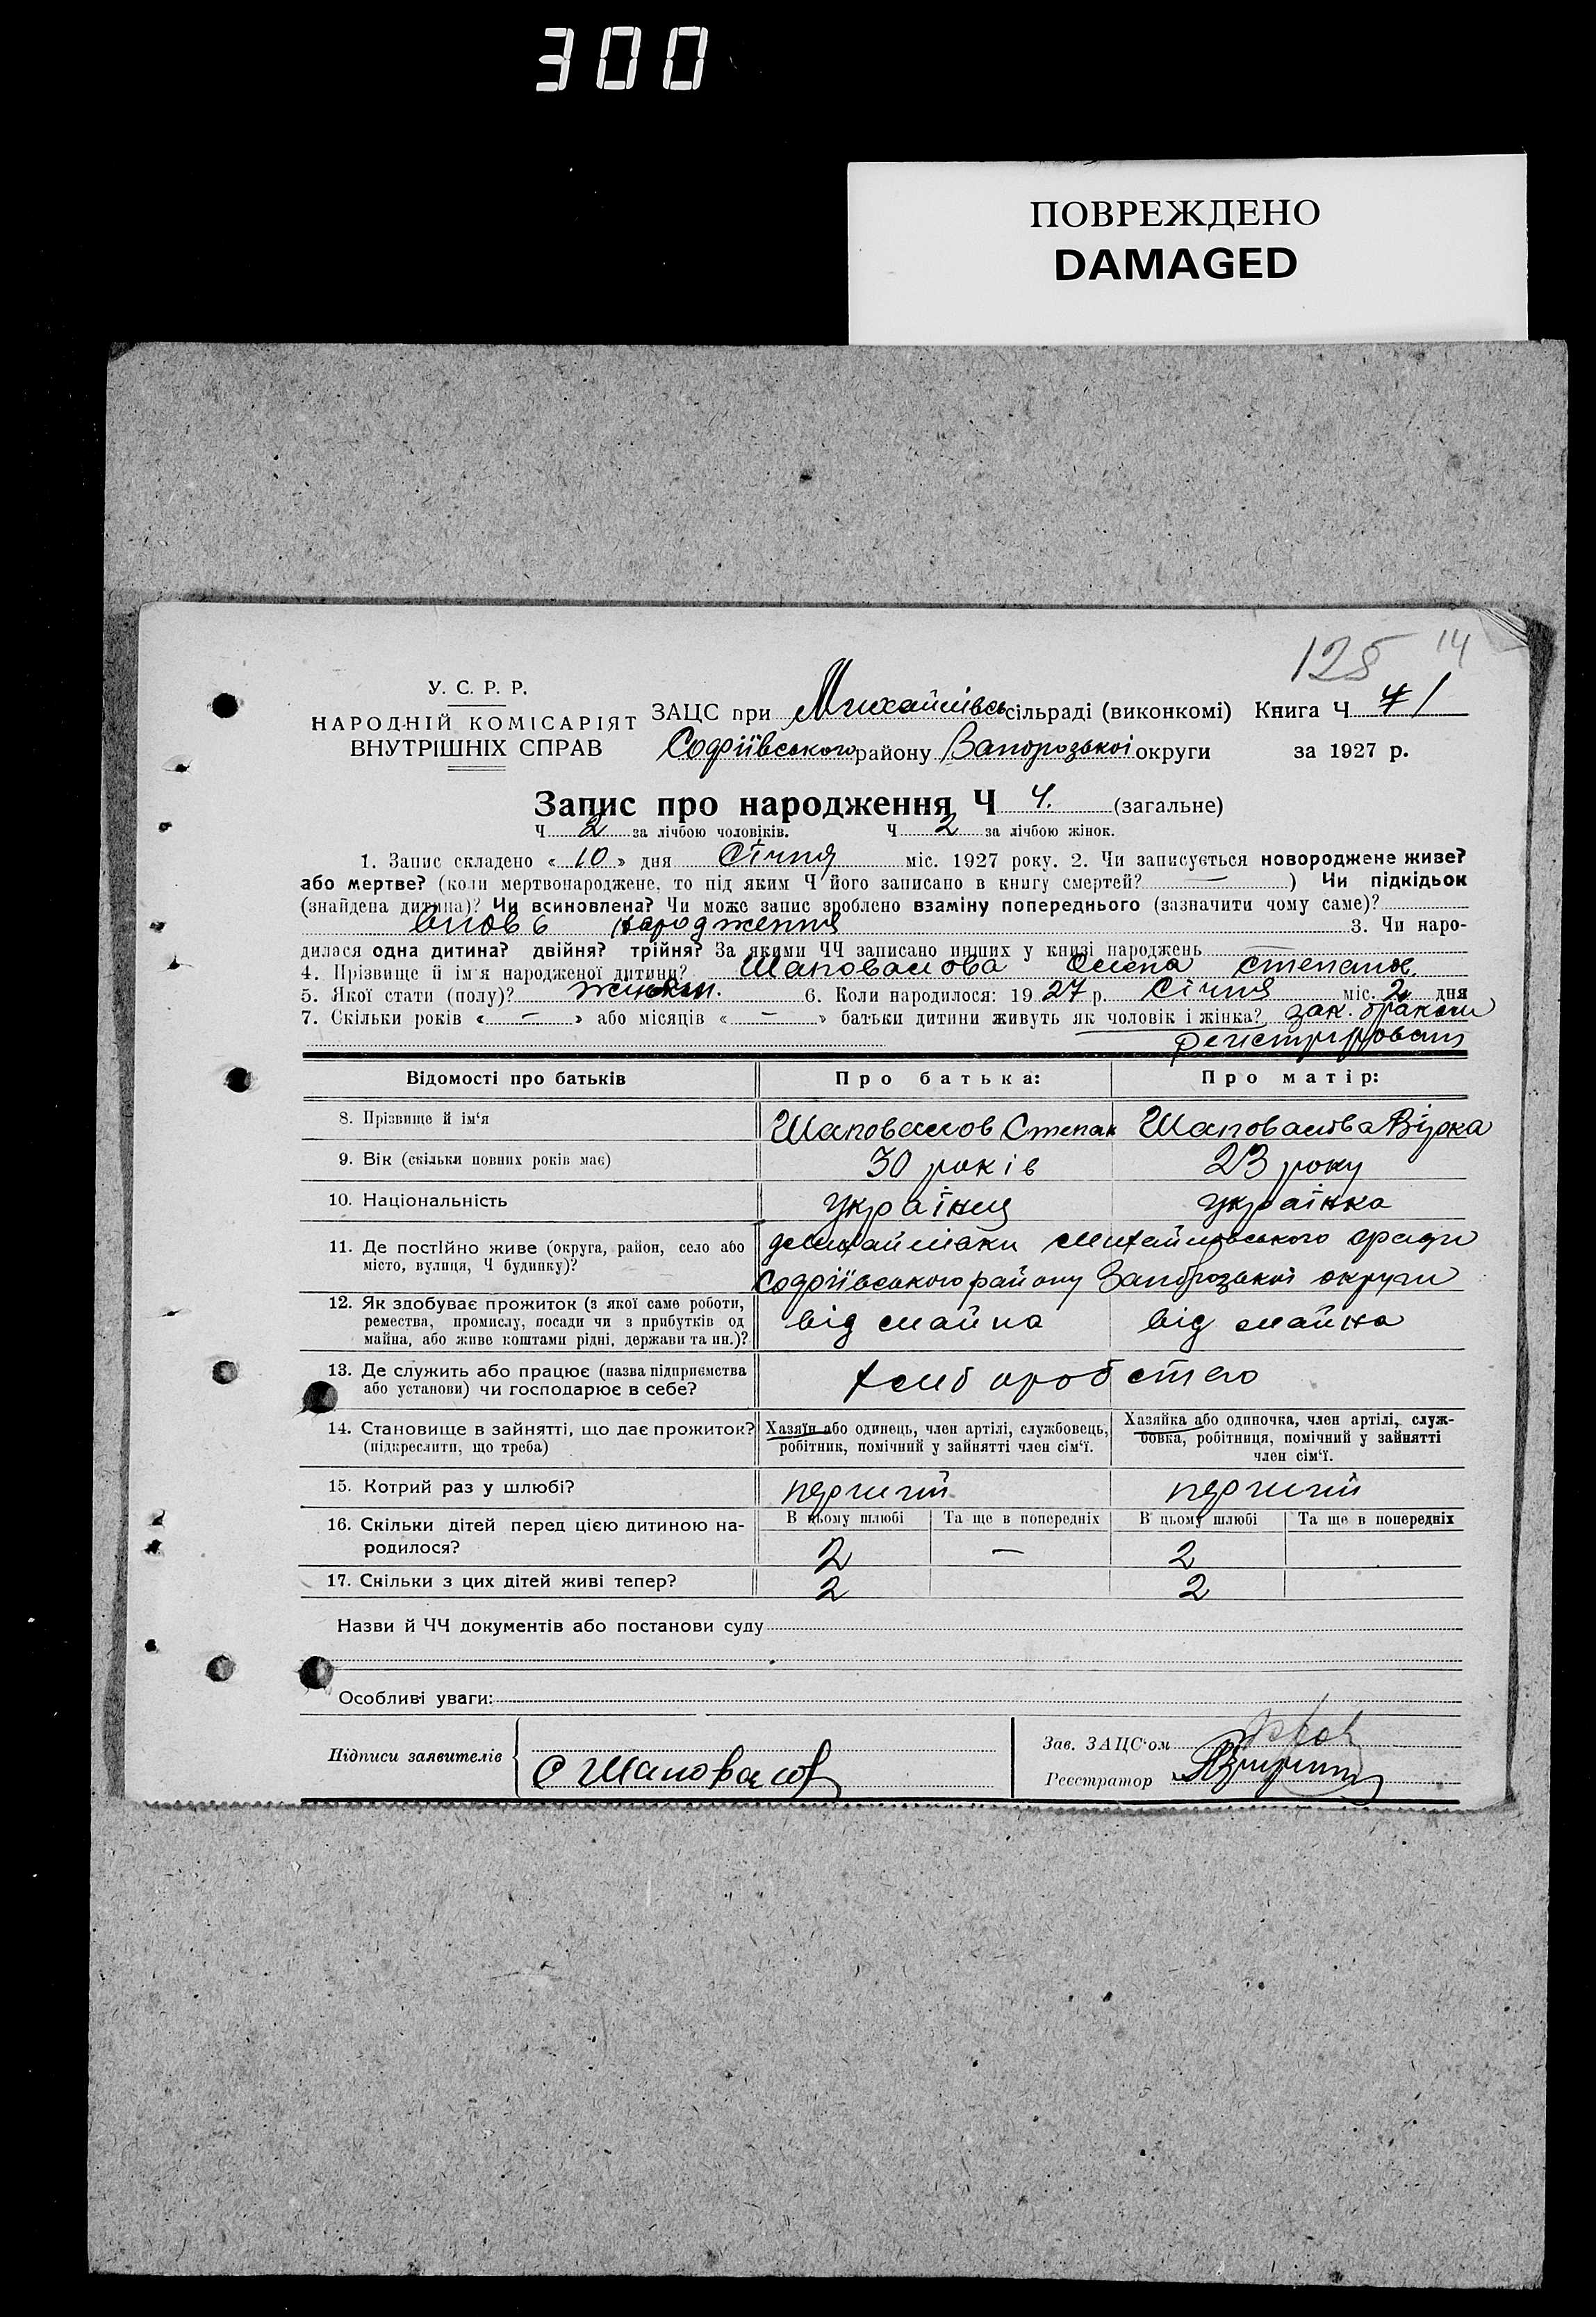 300
ПОВРЕЖДЕНО
DAMAGED
128 14
У. С. Р. Р.
НАРОДНІЙ КОМІСАРІЯТ
ВНУТРІШНІХ СПРАВ
ЗАЦС при Михайлівсь сільраді (виконкомі) Книга Ч 1
Софіївського району Запорозької округи за 1927 р.
Запис про народження Ч 4. (загальне)
Ч 2 за лічбою чоловіків. Ч 2 за лічбою жінок.
1. Запис складено « 10 » дня Січня міс. 1927 року. 2. Чи записується новороджене живе?
або мертве? (коли мертвонароджене, то під яким Ч його записано в книгу смертей? — ) Чи підкідьок
(знайдена дитина)? Чи всиновлена? Чи може запис зроблено взаміну попереднього (зазначити чому саме)?
народження 3. Чи наро-
дилася одна дитина? двійня? трійня? За якими ЧЧ записано инших у книзі народжень
4. Прізвище й ім'я народженої дитини? Шаповалова Олена Степанов.
5. Якої стати (полу)? 6. Коли народилося: 19 27 р. Січня міс. 2 дня
7. Скільки років « — » або місяців « — » батьки дитини живуть як чоловік і жінка? зак. браком
Відомості про батьків Про батька: Про матір:
8. Прізвище й ім'я Шаповалов Степан Шаповалова Вірка
9. Вік (скільки повних років має) 30 років 23 року
10. Національність українць українка
11. Де постійно живе (округа, район, село або
місто, вулиця, Ч будинку)?
Михайлівського
Софіївського району Запорозької округи
12. Як здобуває прожиток (з якої саме роботи,
ремества, промислу, посади чи з прибутків од
майна, або живе коштами рідні, держави та ин.)?
від майна від майна
13. Де служить або працює (назва підприємства
або установи) чи господарює в себе?
хлібороб
14. Становище в зайнятті, що дає прожиток?
(підкреслити, що треба)
Хазяїн або одинець, член артілі, службовець,
робітник, помічний у зайнятті член сім'ї.
Хазяйка або одиночка, член артілі, служ-
бовка, робітниця, помічний у зайнятті
член сім'ї.
15. Котрий раз у шлюбі? перший перший
16. Скільки дітей перед цією дитиною на-
родилося?
В цьому шлюбі Та ще в попередніх В цьому шлюбі Та ще в попередніх
2 — 2
17. Скільки з цих дітей живі тепер? 2 2
Назви й ЧЧ документів або постанови суду
Особливі уваги:
Підписи заявителів С Шаповалов
Зав. ЗАЦС'ом
Реєстратор